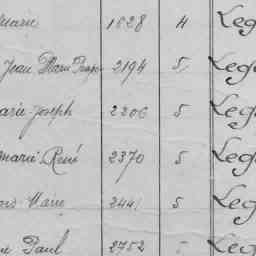 Marie 1628 4 Leg
Jean Marie 2194 5 Leg
Marie-Joseph 2206 5 Leg
Marie René 2370 5 Leg
Marie 2441 5 Leg
Paul 2752 Leg